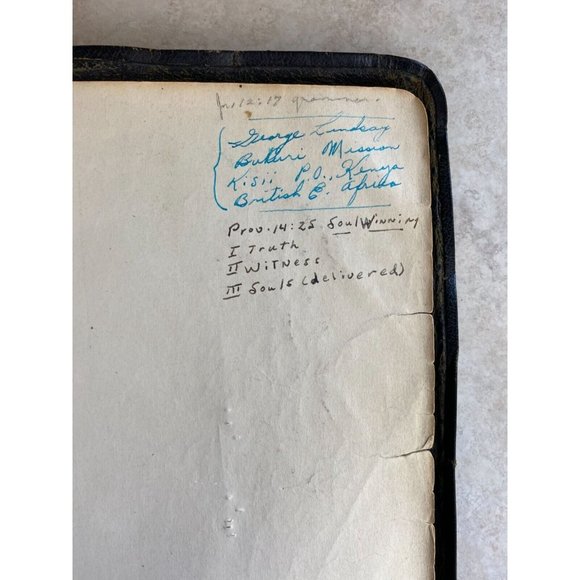 Jn. 12:17 grammar.
George Lindsay
Bukuri Mission
Kisii P.O., Kenya
British E. Africa
Prov. 14:25 Soul Winning
I Truth
II Witness
III Souls (delivered)